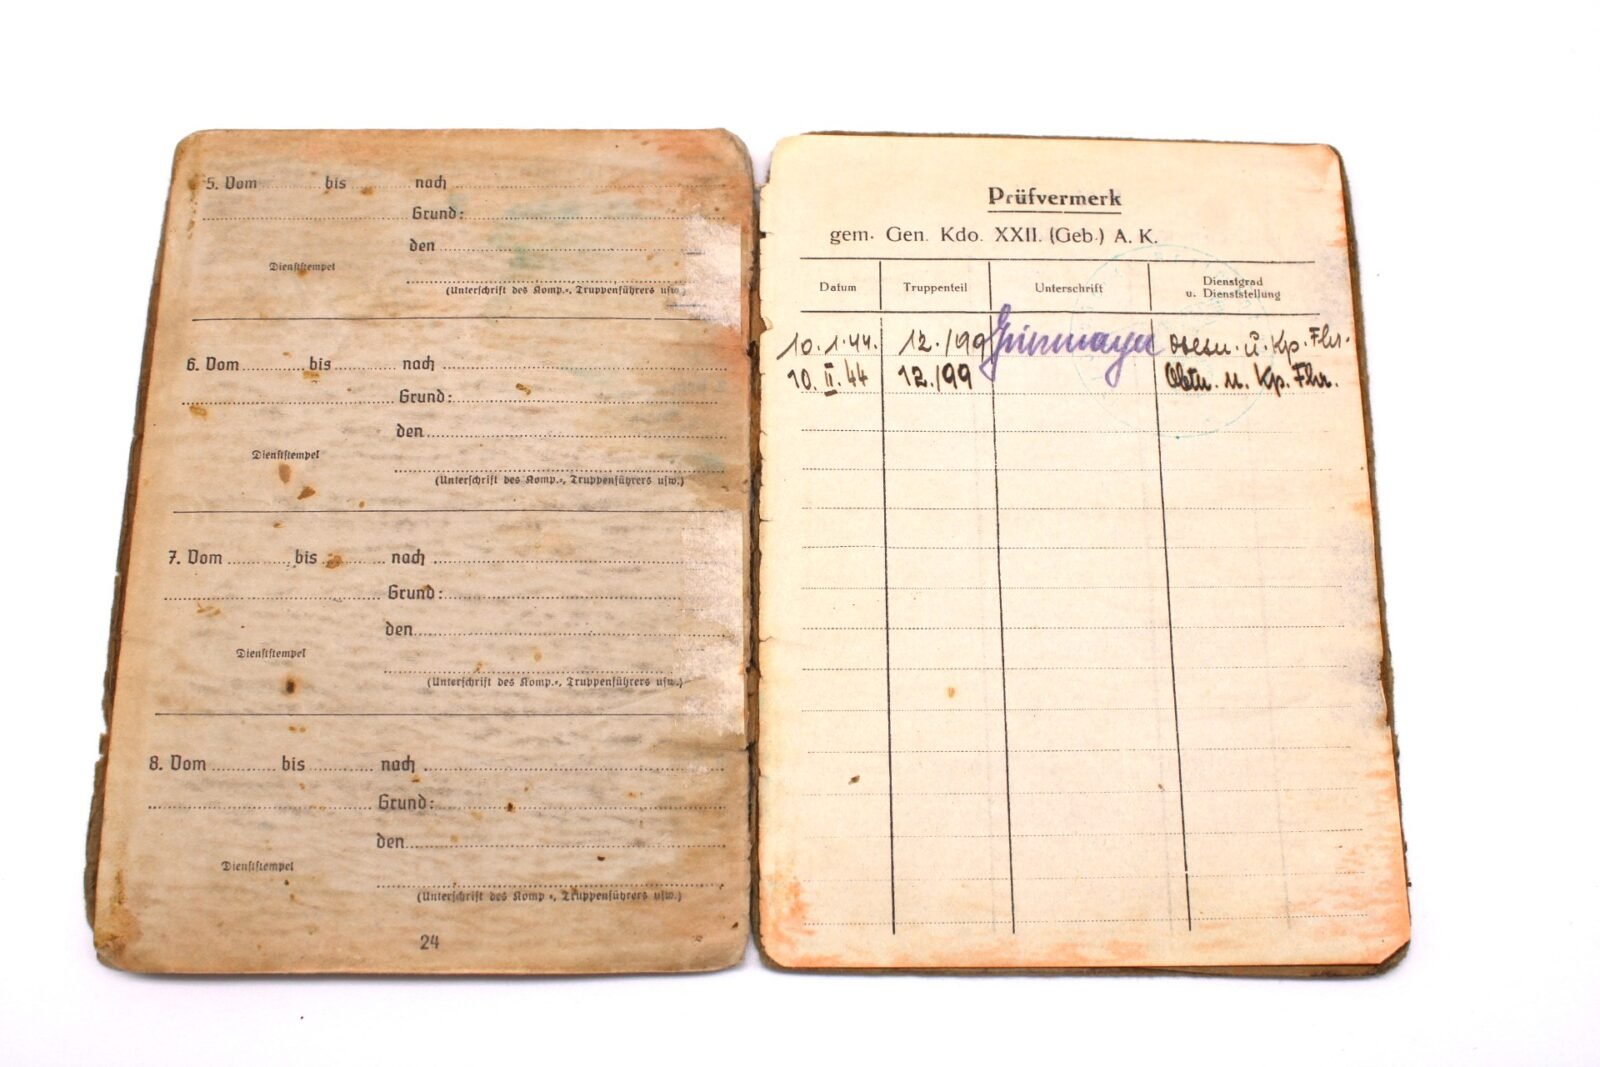 5. Vom bis nach
Grund:
den
Dienststempel
(Unterschrift des Komp.-, Truppenführers usw.)
6. Vom bis nach
Grund:
den
Dienststempel
(Unterschrift des Komp.-, Truppenführers usw.)
7. Vom bis nach
Grund:
den
Dienststempel
(Unterschrift des Komp.-, Truppenführers usw.)
8. Vom bis nach
Grund:
den
Dienststempel
(Unterschrift des Komp.-, Truppenführers usw.)
24
Prüfvermerk
gem. Gen. Kdo. XXII. (Geb.) A. K.
Datum Truppenteil Unterschrift Dienstgrad
u. Dienststellung
10.1.44. 12./99 u. Kp. Fhr.
10.II.44 12./99 Obltn. u. Kp. Fhr.